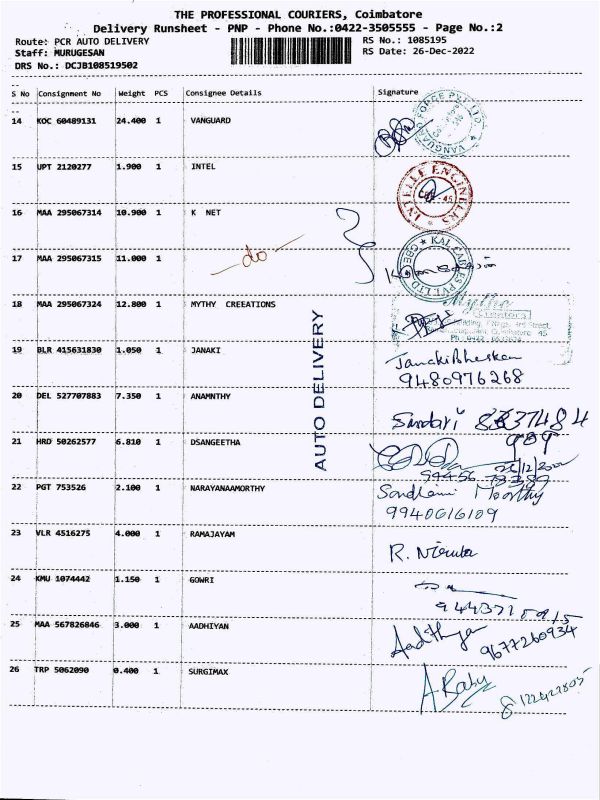 THE PROFESSIONAL COURIERS, Coimbatore
Delivery Runsheet - PNP - Phone No.:0422-3505555 - Page No.:2
Route: PCR AUTO DELIVERY
Staff: MURUGESAN
DRS No.: DCJB108519502
RS No.: 1085195
RS Date: 26-Dec-2022
S No Consignment No Weight PCS Consignee Details Signature
14 KOC 60489131 24.400 1 VANGUARD
VANGUARD FORGE PVT LTD
15 UPT 2120277 1.900 1 INTEL
INTELLE ENGINEERS
16 MAA 295067314 10.900 1 K NET
17 MAA 295067315 11.000 1
-do-
KAL CABLES PVT LTD
18 MAA 295067324 12.800 1 MYTHY CREEATIONS
Mythu
19 BLR 415631830 1.050 1 JANAKI
Janaki Bhaskar
9480976268
20 DEL 527707883 7.350 1 ANAMNTHY
Sundari
21 HRD 50262577 6.810 1 DSANGEETHA
22 PGT 753526 2.100 1 NARAYANAAMORTHY
Moorthy
9940616109
23 VLR 4516275 4.000 1 RAMAJAYAM
R. Nirmala
24 KMU 1074442 1.150 1 GOWRI
25 MAA 567826846 3.000 1 AADHIYAN
Aadithya
9677260934
26 TRP 5062090 0.400 1 SURGIMAX
A Babu
8122427805
AUTO DELIVERY